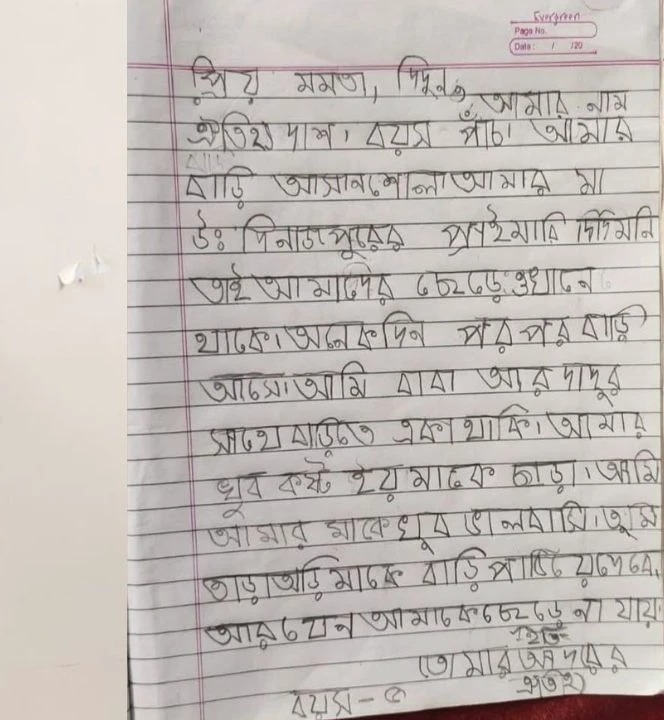 Evergreen
Page No.
Date: / /20
প্রিয় মমতা, দিদুন,
আমার নাম
ঐতিহ্য দাশ। বয়স পাঁচ। আমার
বাড়ি আসানশোল। আমার মা
উঃ দিনাজপুরের প্রাইমারি দিদিমনি
তাই আমাদের ছেড়ে ওখানে
থাকে। অনেক দিন পর পর বাড়ি
আসে। আমি বাবা আর দাদুর
সাথে বাড়িতে একা থাকি। আমার
খুব কষ্ট হয় মাকে ছাড়া। আমি
আমার মাকে খুব ভালবাসি। তুমি
তাড়াতাড়ি মাকে বাড়ি পাঠিয়ে দেবে,
আর যেন আমাকে ছেড়ে না যায়।
ইতি-
তোমার আদরের
ঐতিহ্য
বয়স - ৫